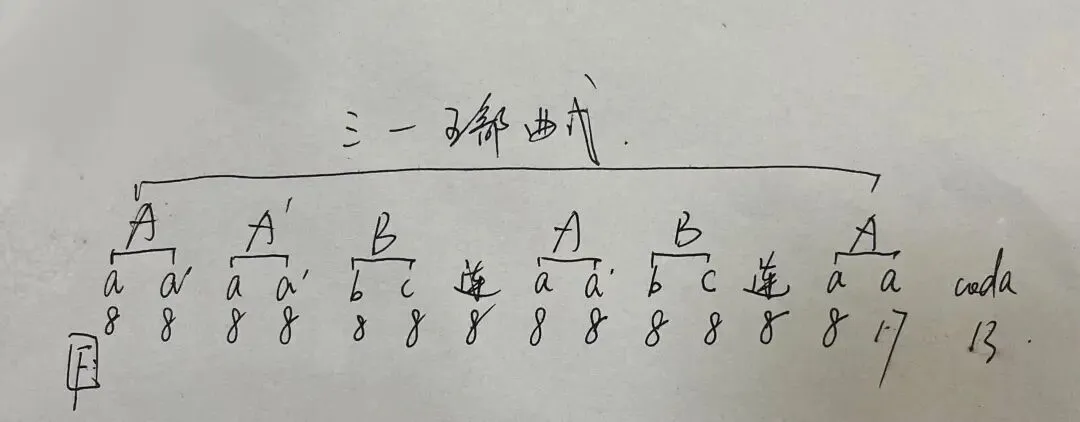 三一五部曲式.
A A' B A B A
a a' a a' b c 连 a a' b c 连 a a coda
8 8 8 8 8 8 8 8 8 8 8 8 8 17 13.
F: